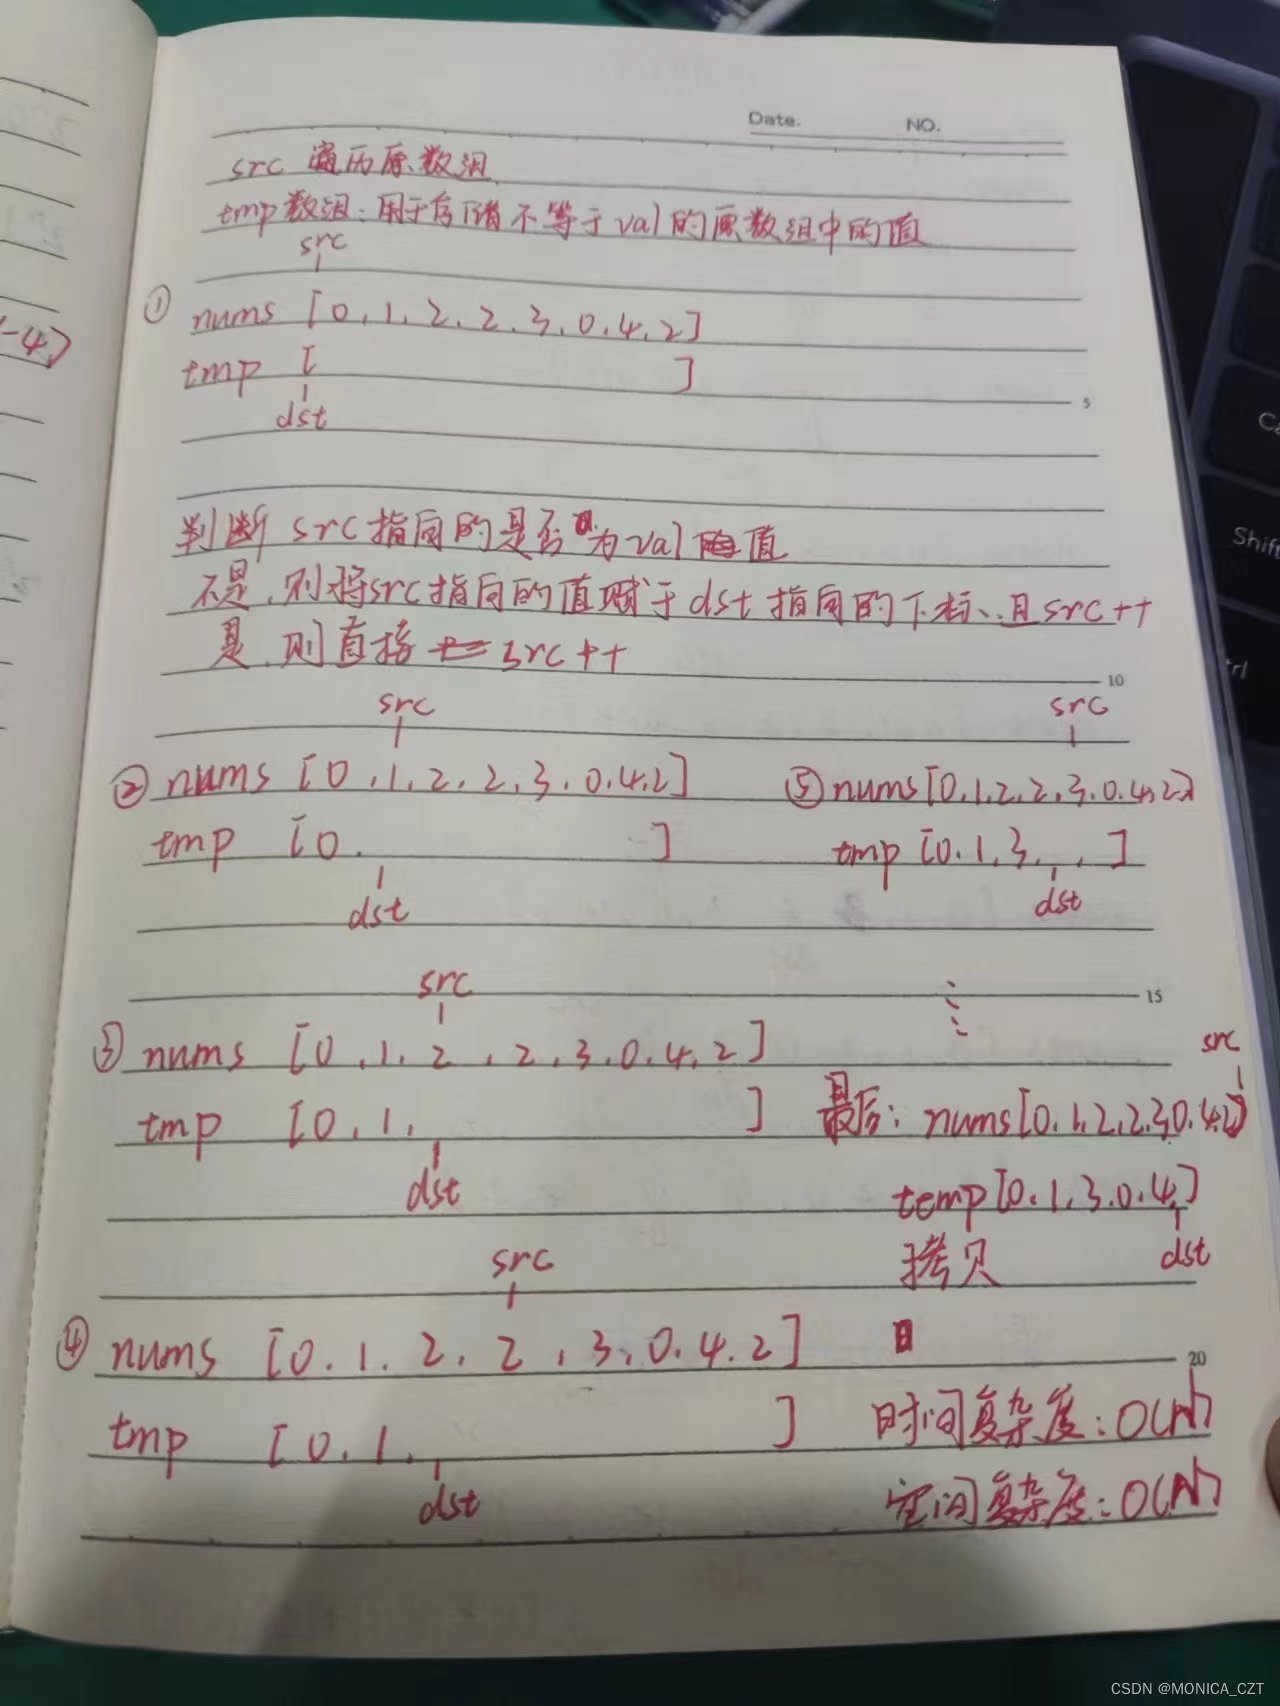 Date. NO.
src 遍历原数组
tmp数组:用于存储不等于val的原数组中的值
src
① nums [0,1,2,2,3,0,4,2]
tmp [ ]
dst
5
判断 src指向的是否为val值
不是,则将src指向的值赋于dst指向的下标、且src++
是,则直接 src++
10
src
② nums [0,1,2,2,3,0.4.2]
tmp [0. ]
dst
src
⑤ nums[0.1.2.2.3.0.4.2]
tmp [0.1.3. . ]
dst
src
③ nums [0,1.2,2.3.0.4.2]
tmp [0.1. ]
dst
15
src
最后: nums[0.1.2.2.3.0.4.2]
temp[0.1.3.0.4.]
拷贝
dst
src
④ nums [0.1.2.2.3.0.4.2]
tmp [0.1. ]
dst
20
时间复杂度:O(N)
空间复杂度:O(N)
-4]
Shift
CSDN @MONICA_CZT